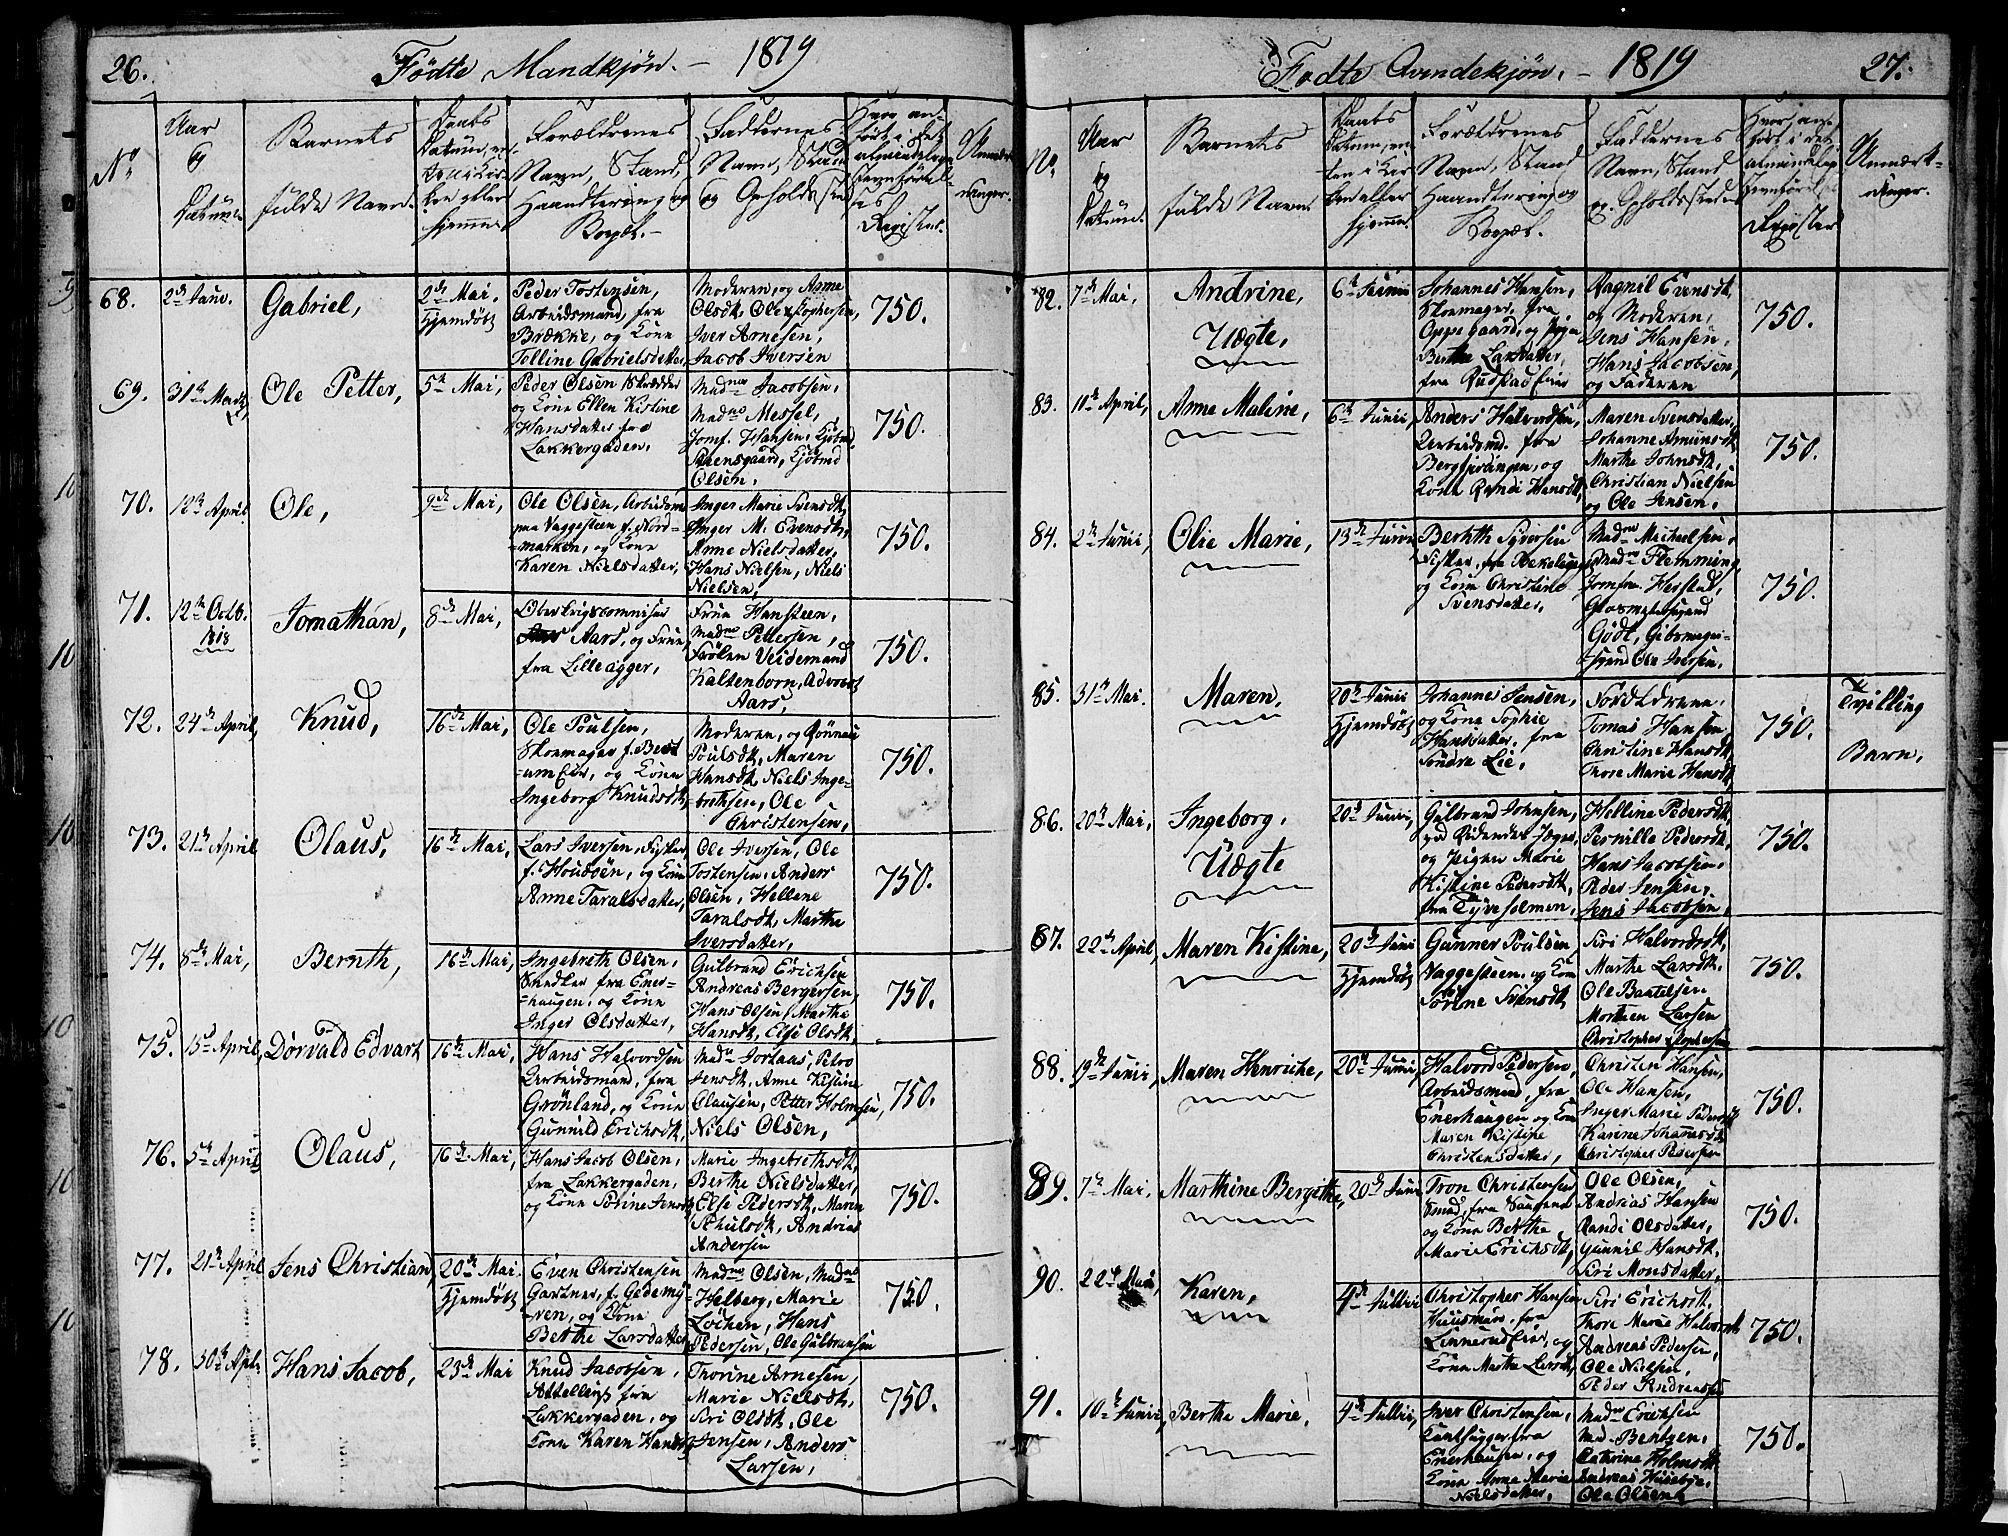 26. Födte Mandkjön. – 1819
No.
Aar
og
Datum.
Barnets
fulde Navn.
Forældrenes
Navn, Stand,
Haandtering og
Bopæl. –
Faddernes
Navn, Stand
og Opholdssted
68.
Gabriel,
2de Mai,
Hjemdöbt
Peder Tostensen,
Arbeidsmand, fra
Brække, og Kone
Tolline Gabrielsdatter,
Moderen, og Anne
Iver Arnesen,
Jacob Iversen
750.
69.
Ole Petter,
5te Mai,
Peder Olsen Skrædder
og Kone Ellen Kistine
Hansdatter fra
Lakkergaden.
Madme Jacobsen,
Madme Messel,
Jomf. Hansen, Kjöbmd
Steensgaard, Kjöbmd
Olsen.
750.
70. 12te April.
Ole,
9de Mai,
Ole Olsen, Arbeidsm
paa Vaggesteen f. Nord-
-marken, og Kone
Karen Nielsdatter,
Inger Marie Svensdt,
Inger M. Evensdt,
Anne Nielsdatter,
Hans Nielsen, Niels
Nielsen,
750.
71. 12te Octb.
1818
Jomathan,
8de Mai,
Aars, og Frue,
fra Lille
Frue Hansteen,
Madme Pettersen,
Frölen Veidemand
Kaltenborn, Advocat
Aars,
750.
72. 24de April,
Knud,
16de Mai,
Ole Poulsen,
Skomager f.
og Kone
Ingeborg Knudsdt,
Moderen, og Rönnau
Poulsdt, Maren
Hansdt, Niels Inge-
brethsen, Ole
Christensen,
750.
73. 21de April
Olaus,
16de Mai,
Lars Iversen, Fisker
f. Houdöen, og Kone
Anne Taralsdatter,
Ole Iversen, Ole
Tostensen, Anders
Olsen, Hellene
Taralsdt, Marthe
Iversdatter,
750.
74. 8de Mai,
Bernth,
16de Mai,
Ingebreth Olsen,
Snedker fra Ener-
-haugen, og Kone
Inger Olsdatter,
Gulbrand Erichsen
Andreas Bergersen,
Hans Olsen, Marthe
Hansdt, Else Olsdt,
750.
75. 15de April,
Dorvald Edvart
16de Mai,
Hans Halvordsen
Arbeidsmand, fra
Grönland, og Kone
Gunnild Erichsdt,
Jensdt, Anne Kistine
Clausen, Petter Holmsen,
Niels Olsen,
750.
76. 5te April
Olaus,
16de Mai,
Hans Jacob Olsen,
fra Lakkergaden,
og Kone Torine
Marie Ingebrethsdt,
Berthe Nielsdatter,
Else Pedersdt, Maren
Poulsdt, Andreas
Andersen
750.
77. 21de April
Jens Christian,
20de Mai.
Hjemdöbt
Even Christensen
Gartner, f. Gedemy-
-ren, og Kone
Berthe Larsdatter
Madme Olsen, Madme
Helberg, Marie
Löchen, Hans
Pedersen, Ole Gulbransen
750.
78. 30te Apl.
Hans Jacob,
23de Mai
Knud Jacobsen,
fra
Lakkergaden, og
Kone Karen Hansdt,
Thorine Arnesen,
Marie Nielsdt,
Siri Olsdt, Ole
Jensen, Anders
Larsen,
750.
Födte Qvindekjön. – 1819 27.
No.
Aar
og
Datum.
Barnets
fulde Navn
Forældrenes
Navn, Stand
Haandtering og
Bopæl.
Faddernes
Navn, Stand
og Opholdssted
82. 7de Mai,
Andrine,
Uægte,
6te Junii
Johannes Hansen,
Skomager, fra
Oppegaard, og Pige
Berthe Larsdatter,
Ragnil Evensdt,
og Moderen,
Jens Hansen,
Hans Jacobsen,
og Faderen
750.
83. 11te April,
Anne Maline,
6te Junii,
Anders Halvordsen,
Arbeidsmd. fra
og
Kone Randi Hansdt,
Maren Svensdatter,
Johanne Amundsdt
Marthe Johnsdt,
Christian Nielsen
og Ole Jensen.
750.
84. 2de Junii,
Olie Marie,
13de Junii
Bernth Syversen
Fisker, fra Bekelaget
og Kone Christine
Svensdatter,
Madme Michelsen,
Madme Flemming,
Jomfru Herstad,
Glasmestersvend
Gödt,
Ole Iversen.
750.
85. 31te Mai.
Maren,
20de Junii
Hjemdöbt
Johannes Jensen,
og Kone Sophie
Hansdatter, fra
Söndre Lie,
Forældrene,
Tomas Hansen
Christine Hansdt,
Thore Marie Hansdt,
750.
Tvilling
Barn,
86. 20de Mai,
Ingeborg,
Uægte
20de Junii,
Gulbrand Johnsen,
og Pigen Marie
Kistine Pedersdt,
fra Tyveholmen,
Helline Pedersdt,
Pernille Pedersdt,
Hans Jacobsen,
Peder Jensen,
Jens Jacobsen,
750.
87. 22de April,
Maren Kistine,
20de Junii
Hjemdöbt
Gunner Poulsen
Vaggesteen, og Kone
Torine Svensdt
Siri Halvordsdt,
Marthe Larsdt,
Ole Bartelsen
Morthen Larsen
Christopher
750.
88. 19de Junii,
Maren Henriche,
20de Junii,
Halvord Pedersen,
Arbeidsmand, fra
Enerhaugen og Kone
Maren Kistine
Christensdatter,
Christen Hansen,
Ole Hansen,
Inger Marie Pedersdt,
Karine Johannesdt,
Christopher Pedersen
750.
89. 7de Mai.
Marthine Bergithe,
20de Junii
Tron Christensen
Smed, fra
og Kone Berthe
Marie Erichsdt,
Ole Olsen,
Andreas Hansen
Randi Olsdatter,
Gunnil Hansdt,
Siri Monsdatter,
750.
90. 22de
Karen,
4de Julii
Christopher Hansen
Huusmand, fra
og
Kone Marthe Larsdt,
Siri Erichsdt,
Thore Marie Halvorsdt
Andreas Pedersen,
Ole Nielsen,
Peder Andreassen
750.
91. 10de Junii,
Berthe Marie,
4de Julii,
Iver Christensen,
fra
Enerhaugen, og
Kone Anne Marie
Nielsdatter,
Madme Erichsen
Mad. Bentzen,
Cathrine Holmsdt
Andreas Husebye,
Ole Olsen
750.